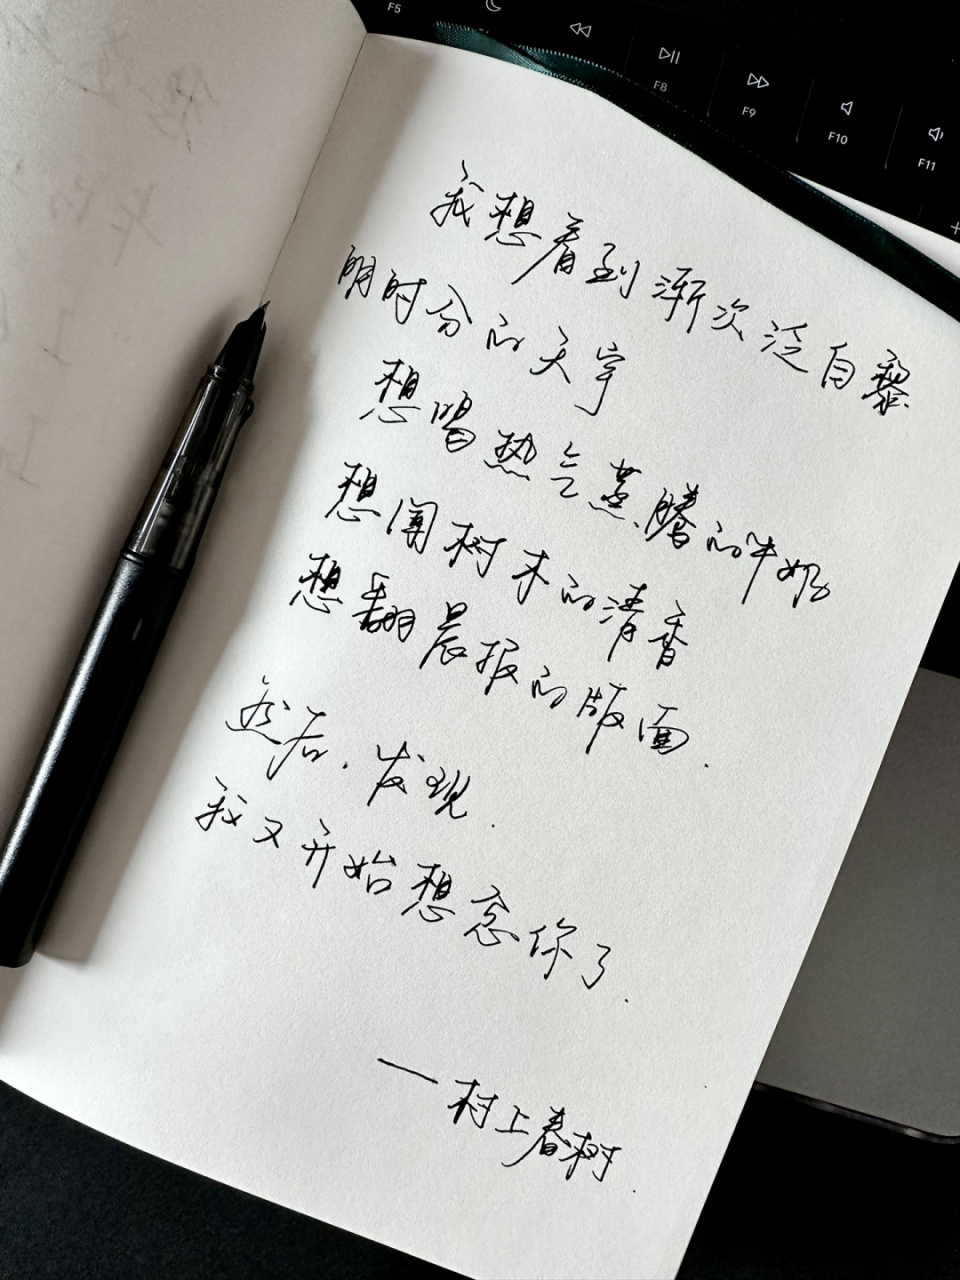 F5
F8
F9
F10
F11
我想看到渐次泛白黎
明时分的天宇
想喝热气蒸腾的牛奶
想闻树木的清香
想翻晨报的版面.
然后.发现.
我又开始想念你了.
—村上春树.